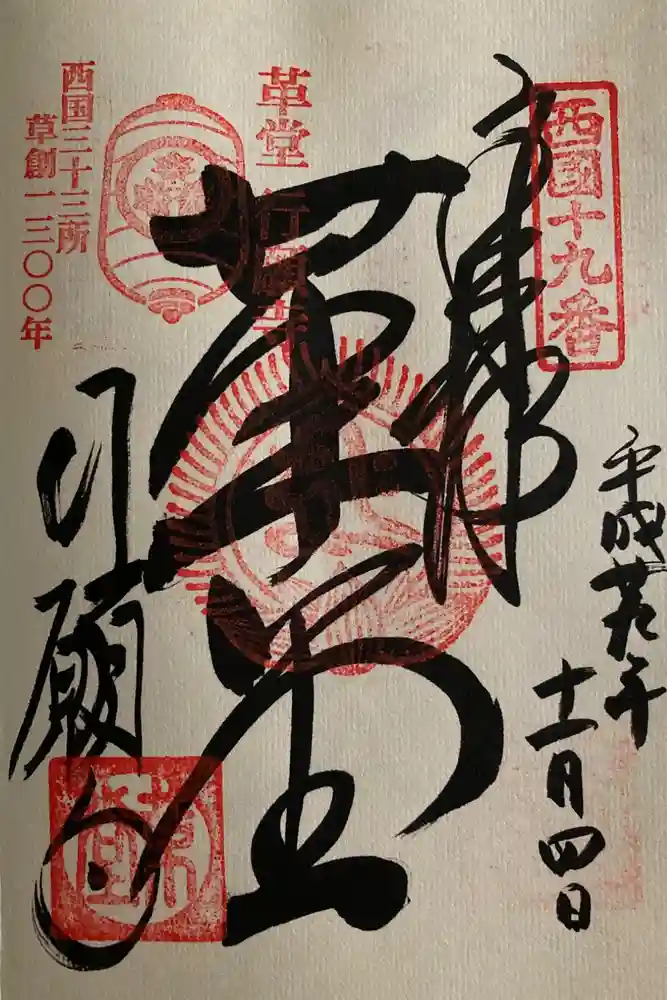 西國十九番
奉拝
平成廿九年
十一月四日
革堂
革堂 行願寺
行願寺
西国三十三所
草創一三〇〇年